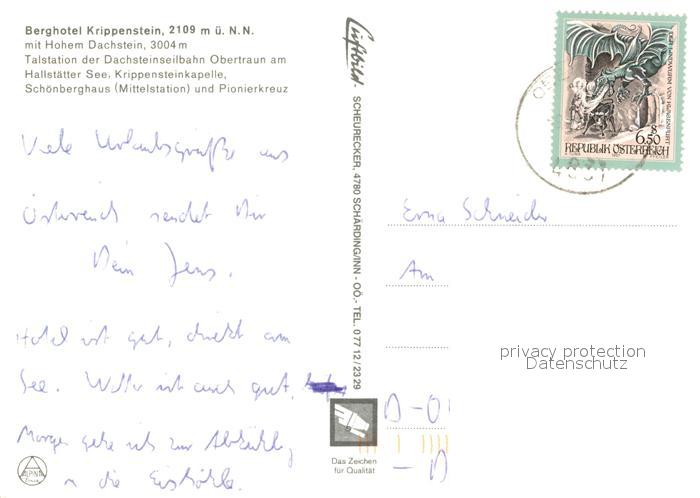 Berghotel Krippenstein, 2109 m ü. N.N.
mit Hohem Dachstein, 3004 m
Talstation der Dachsteinseilbahn Obertraun am
Hallstätter See, Krippensteinkapelle,
Schönberghaus (Mittelstation) und Pionierkreuz
Viele Urlaubsgrüße aus
Österreich sendet Dir
Dein Jens.
Hotel ist gut, direkt am
See. Wetter ist auch gut.
Morgen gehe ich zur Abkühlung
in die Eishöhle.
ALPINA
Luftbild
SCHEURECKER, 4780 SCHÄRDING/INN - OÖ.- TEL. 07712/2329
Das Zeichen
für Qualität
DER LINDWURM VON KLAGENFURT
S
6.50
REPUBLIK ÖSTERREICH
4831
Erna Schneider
Am
privacy protection
Datenschutz
D-01
- D